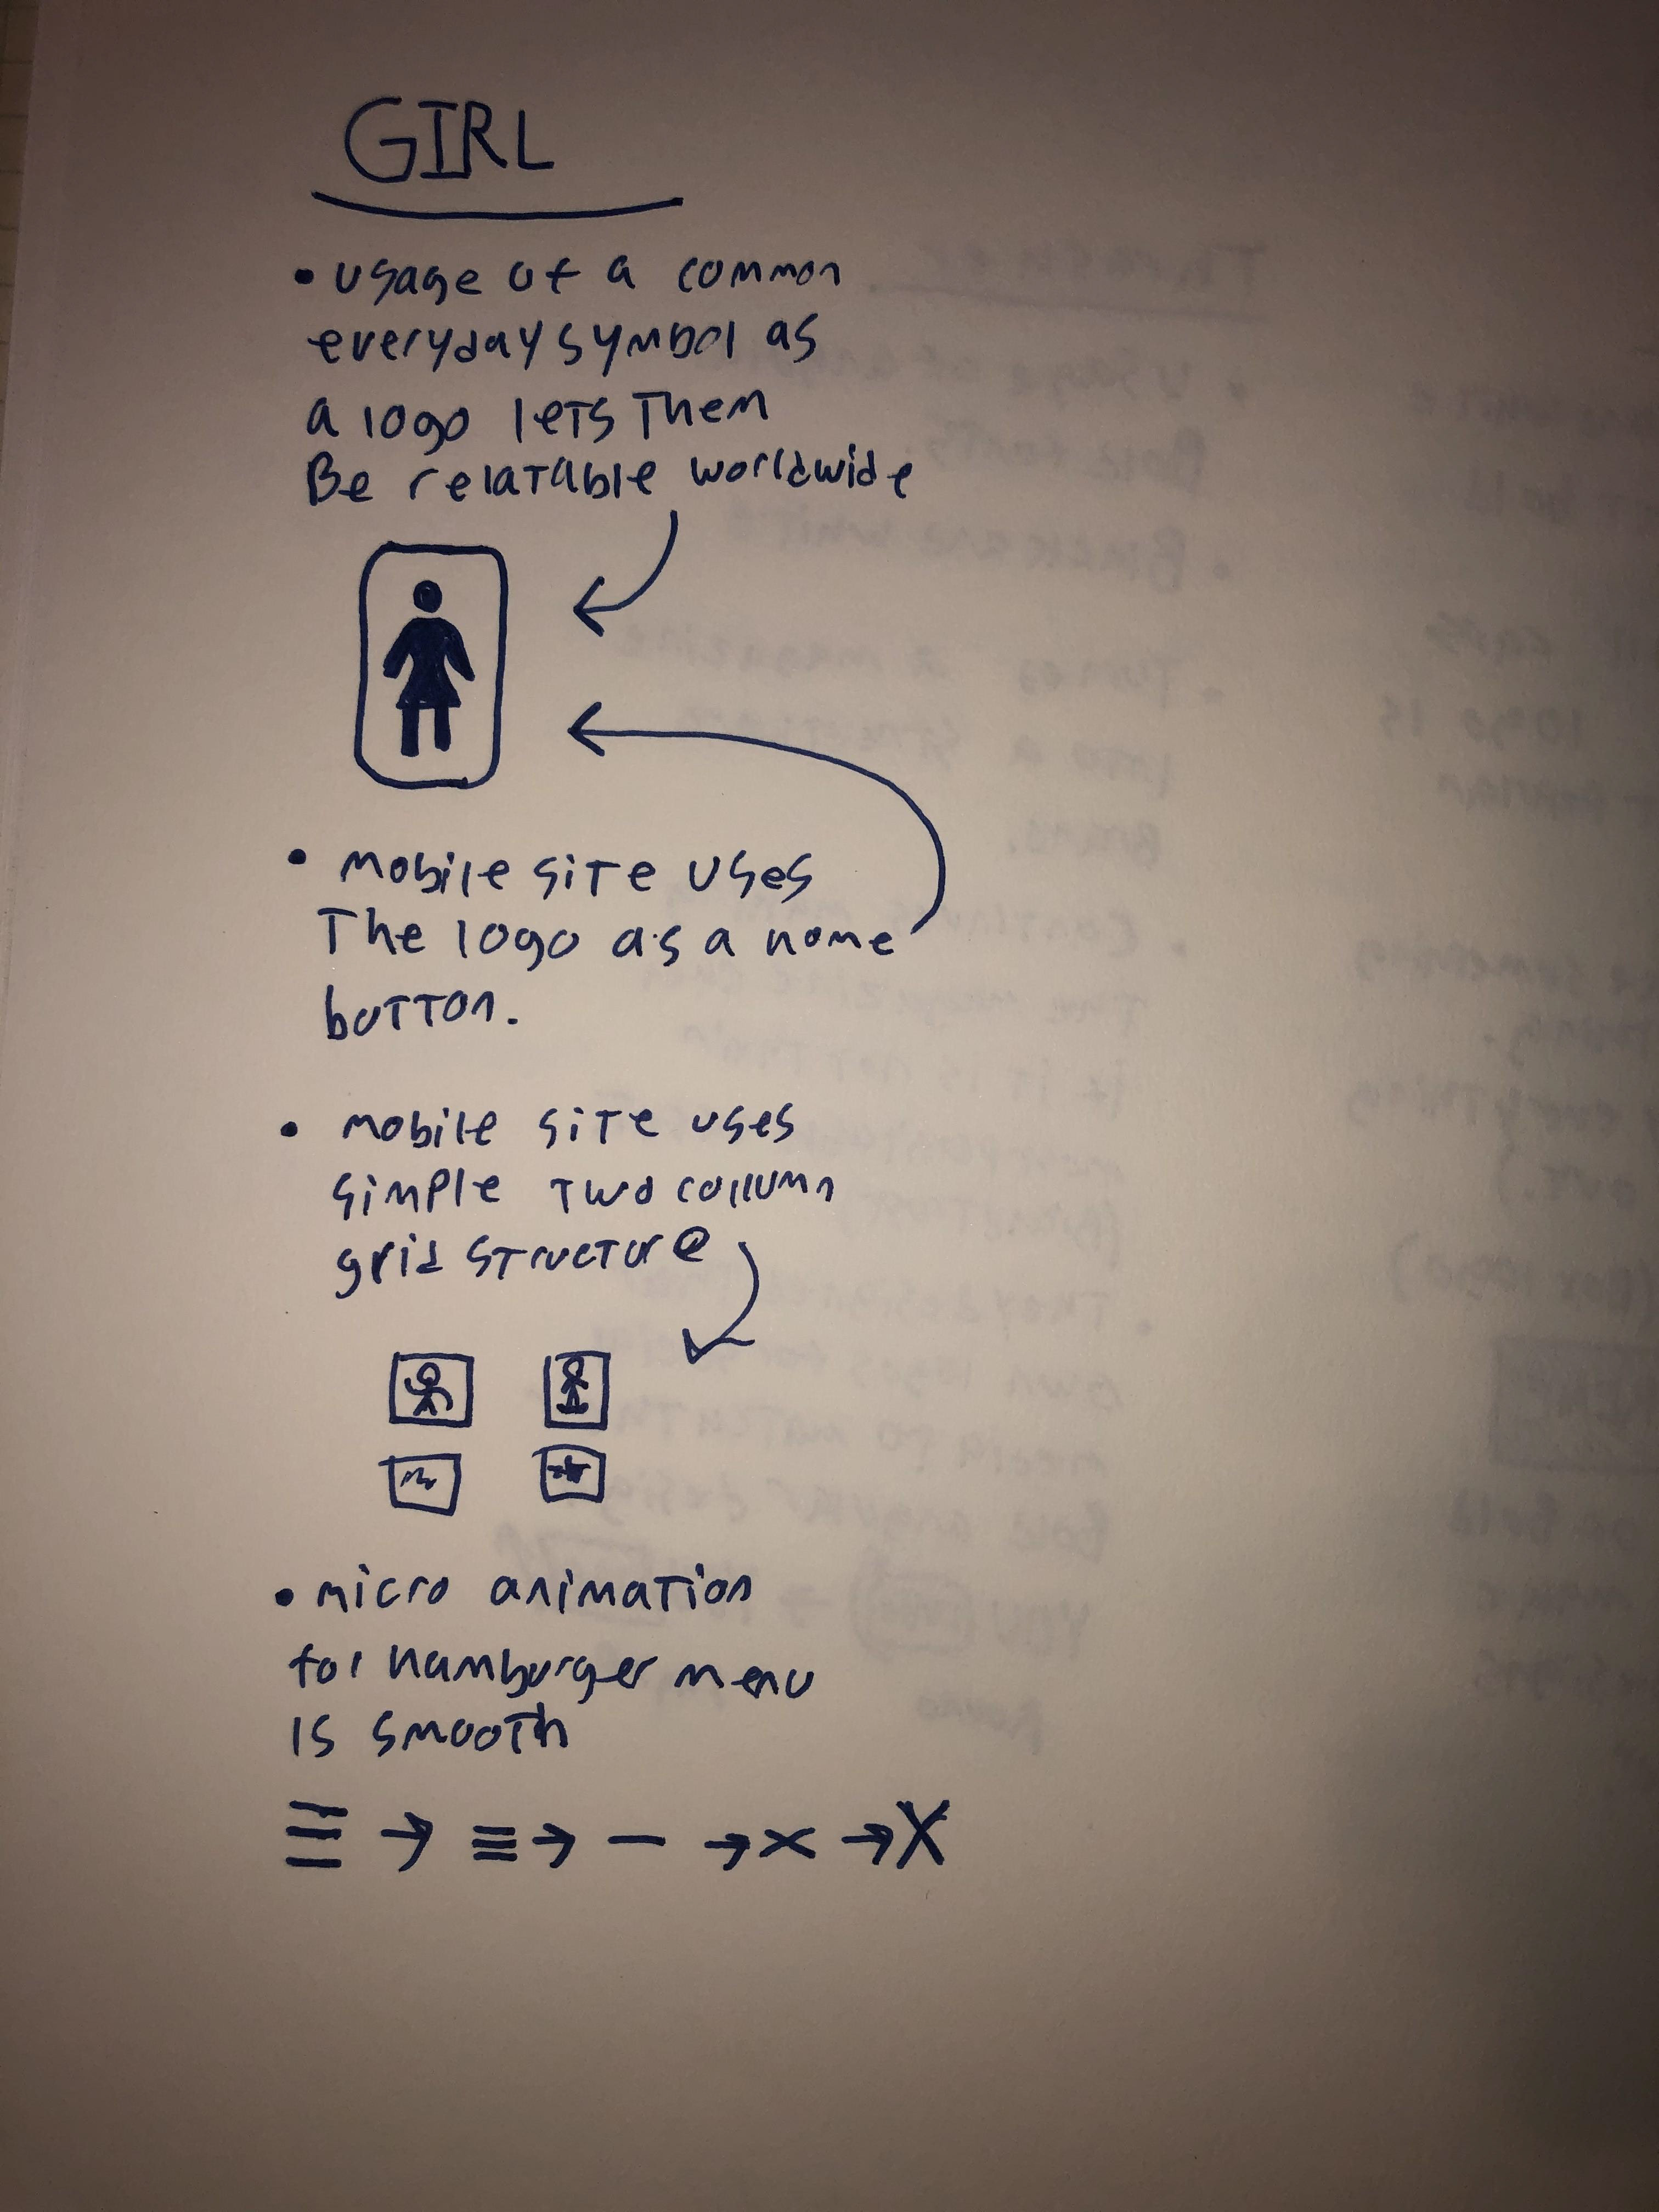 GIRL
• Usage of a common
everyday symbol as
a logo lets Them
Be relatable worldwide
• mobile site uses
The logo as a home
button.
• mobile site uses
simple two collumn
grid structure
• micro animation
for hamburger menu
is smooth